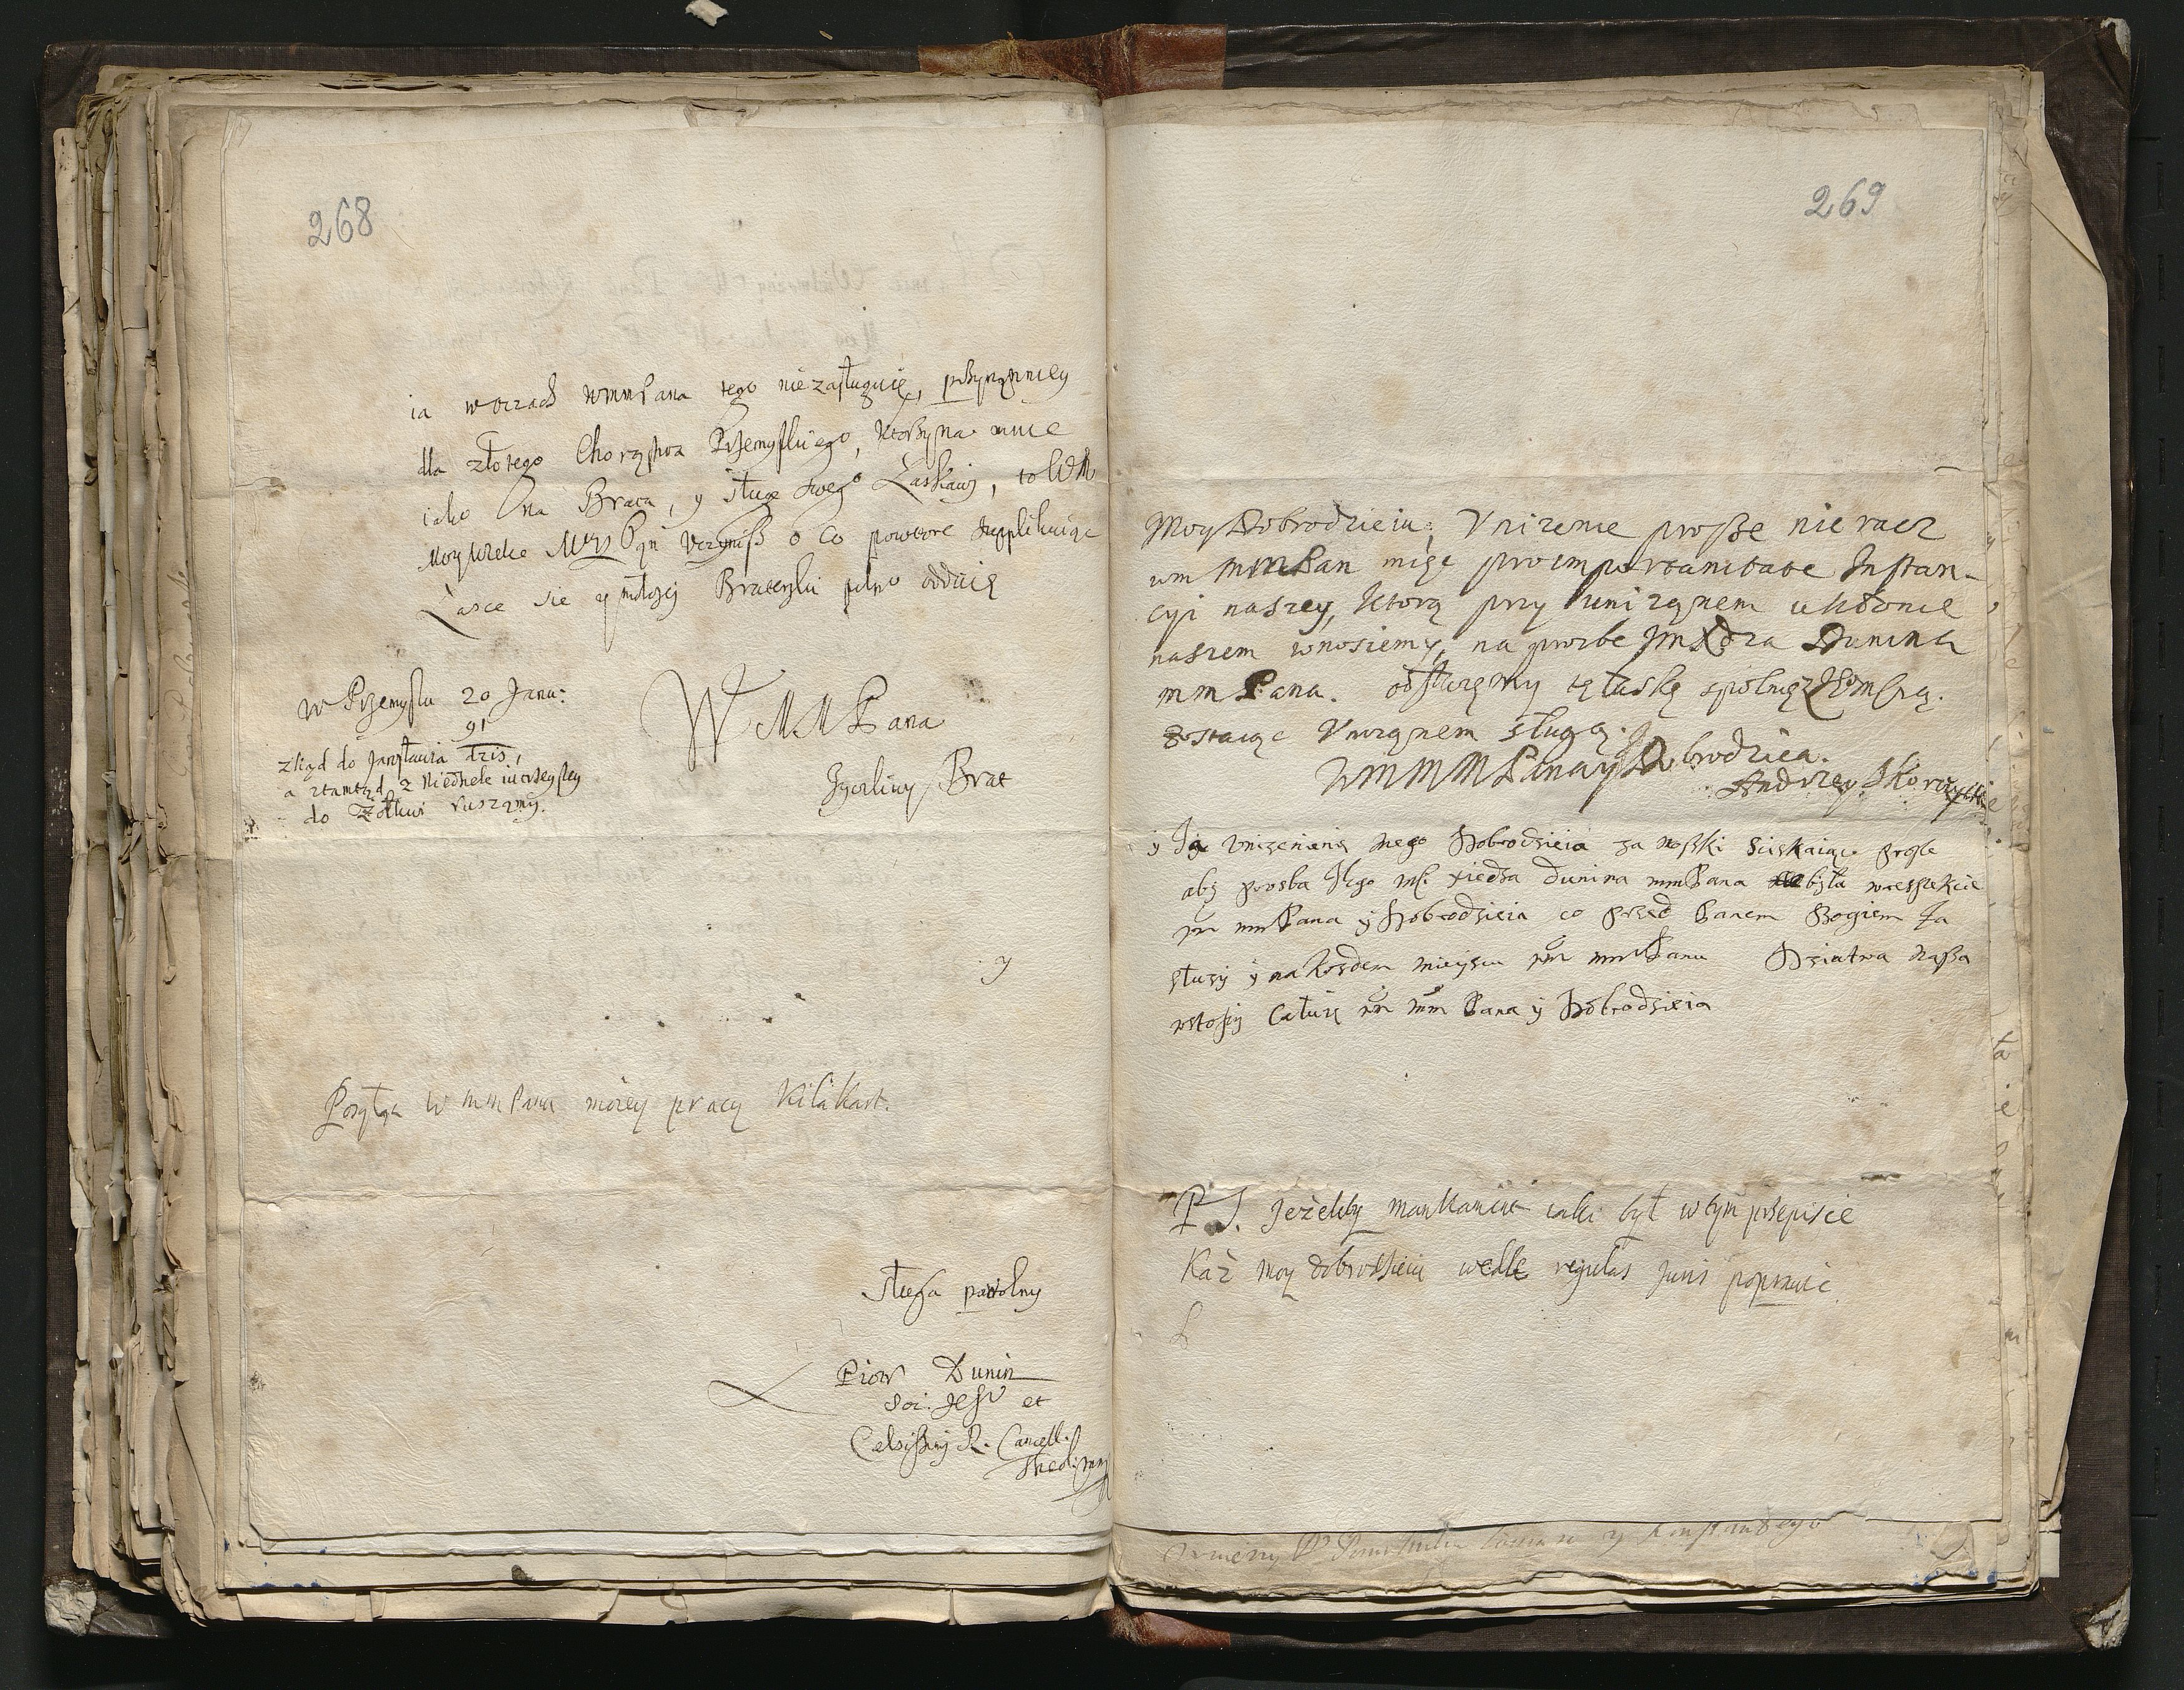 268
ia w oczach WMMPana tego nie zasługuię, przynamniey
dla złotego Chorąstwa Przemyskiego, ktorzy na mnie
iako Pana Brata, y sługę swego Łaskawi, to WM
moy Wielce Mczy Pan Uczynisz o co powtore supplikuiąc
Łasce sie y miłosci Braterski pilno oddaię
w Przemyslu 20 Janu:
91
ztąd do Jarosławia dzis,
a ztamtąd z Niedziele iutrzeyszey
do Żołkwi ruszamy.
WMMPana
Zyczliwy Brat
y
Posyłam WMMPanu moiey pracy kila kart.
sługa powolny
Piotr Dunin
Soc: Jesu et
Celsissimi R. Cancell.
Theol: mp
269
Moy Dobrodzieiu, Unizenie prosze nie racz
wm MMPan mięć pro importunitate Instan-
cyi naszey, ktorą przy unizonem ukłonie
naszem wnosiemy, na prozbe Jm Xdza Dunina
mm Pana. odsłuzęmy tę łaskę spolnię z Zomą.
zostaiąc Unizonem sługą.
WMMMPana y Dobrodziea.
Andrzey Skorzyski
y Ja Unizenie mego Dobrodzieia za noszki sciskaiąc prosze
aby prosba Jego mc. xiedza dunina mmPana była w respekcie
wm mmPana y Dobrodzieia co przed Panem Bogiem za
słuzy y na kozdem mieyscu wm mmPanu Dziatwa nasza
w stopy Całuię wm mm Pana y Dobrodzieia
PS. Jeżeliby mankament iaki był w tym przepisie
Każ moy dobrodzieiu wedle regulas juris poprawic